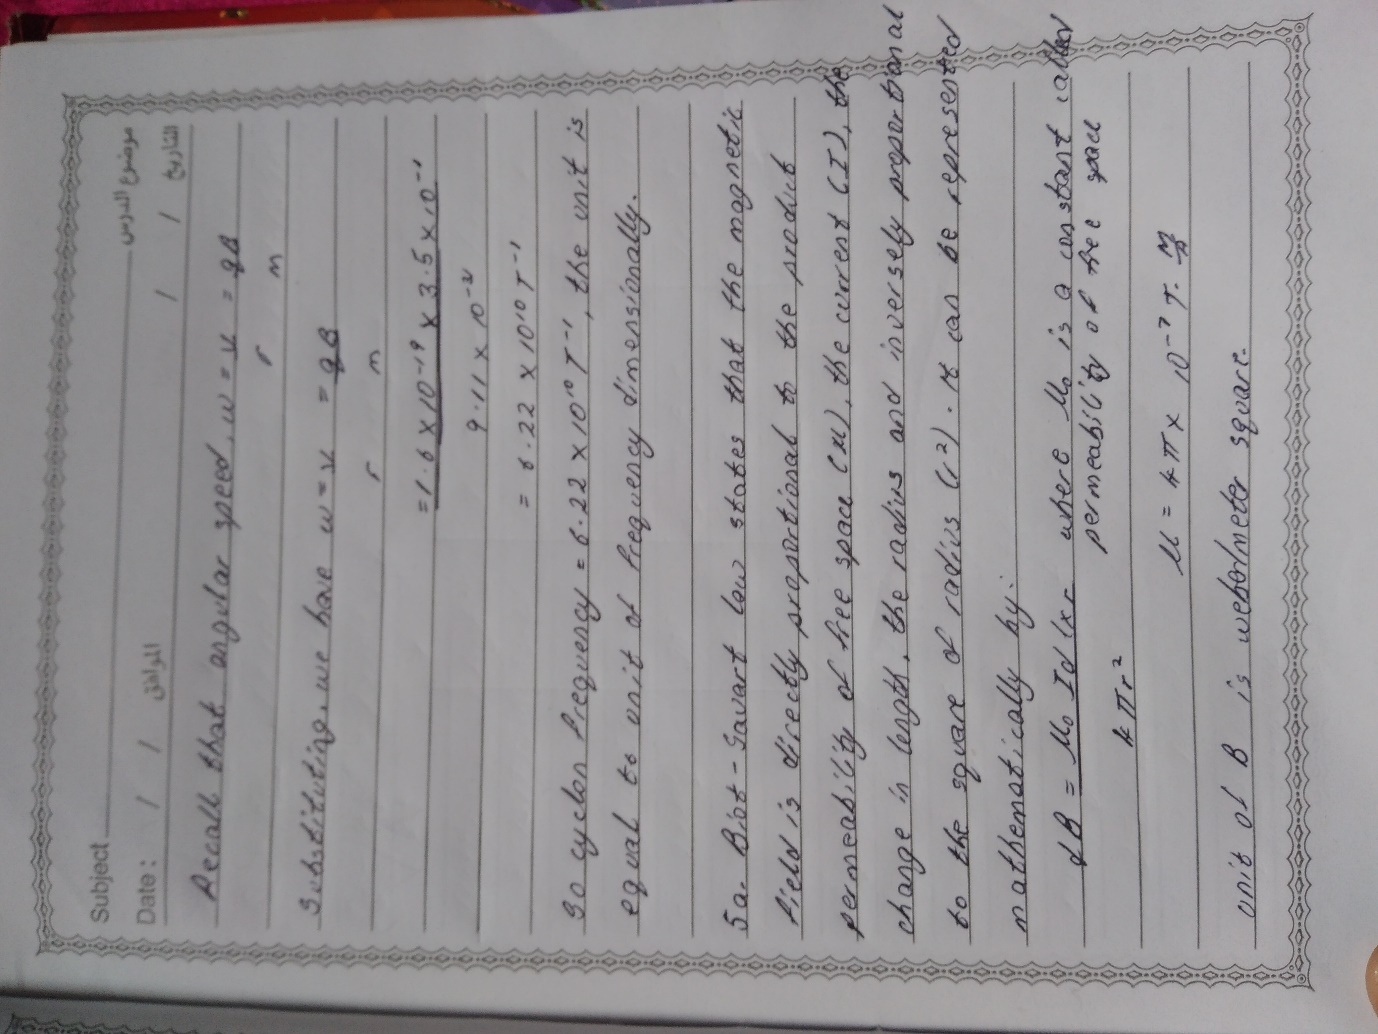 Subject
موضوع الدرس
Date : / / الموافق / / التاريخ
Recall that angular speed, w = v = qB
r m
Substituting, we have w = v = qB
r m
= 1.6 x 10⁻¹⁹ x 3.5 x 10⁻¹
9.11 x 10⁻³¹
= 6.22 x 10¹⁰ T⁻¹
So cyclon frequency = 6.22 x 10¹⁰ T⁻¹, the unit is
equal to unit of frequency dimensionally.
5a. Biot - Savart law states that the magnetic
field is directly proportional to the product
permeability of free space (μ), the current (I), the
change in length, the radius and inversely proportional
to the square of radius (r²). It can be represented
mathematically by:
dB = μ₀ Idl x r where μ₀ is a constant called
4πr² permeability of free space
μ = 4π x 10⁻⁷ T. m/A
unit of B is weber/meter square.